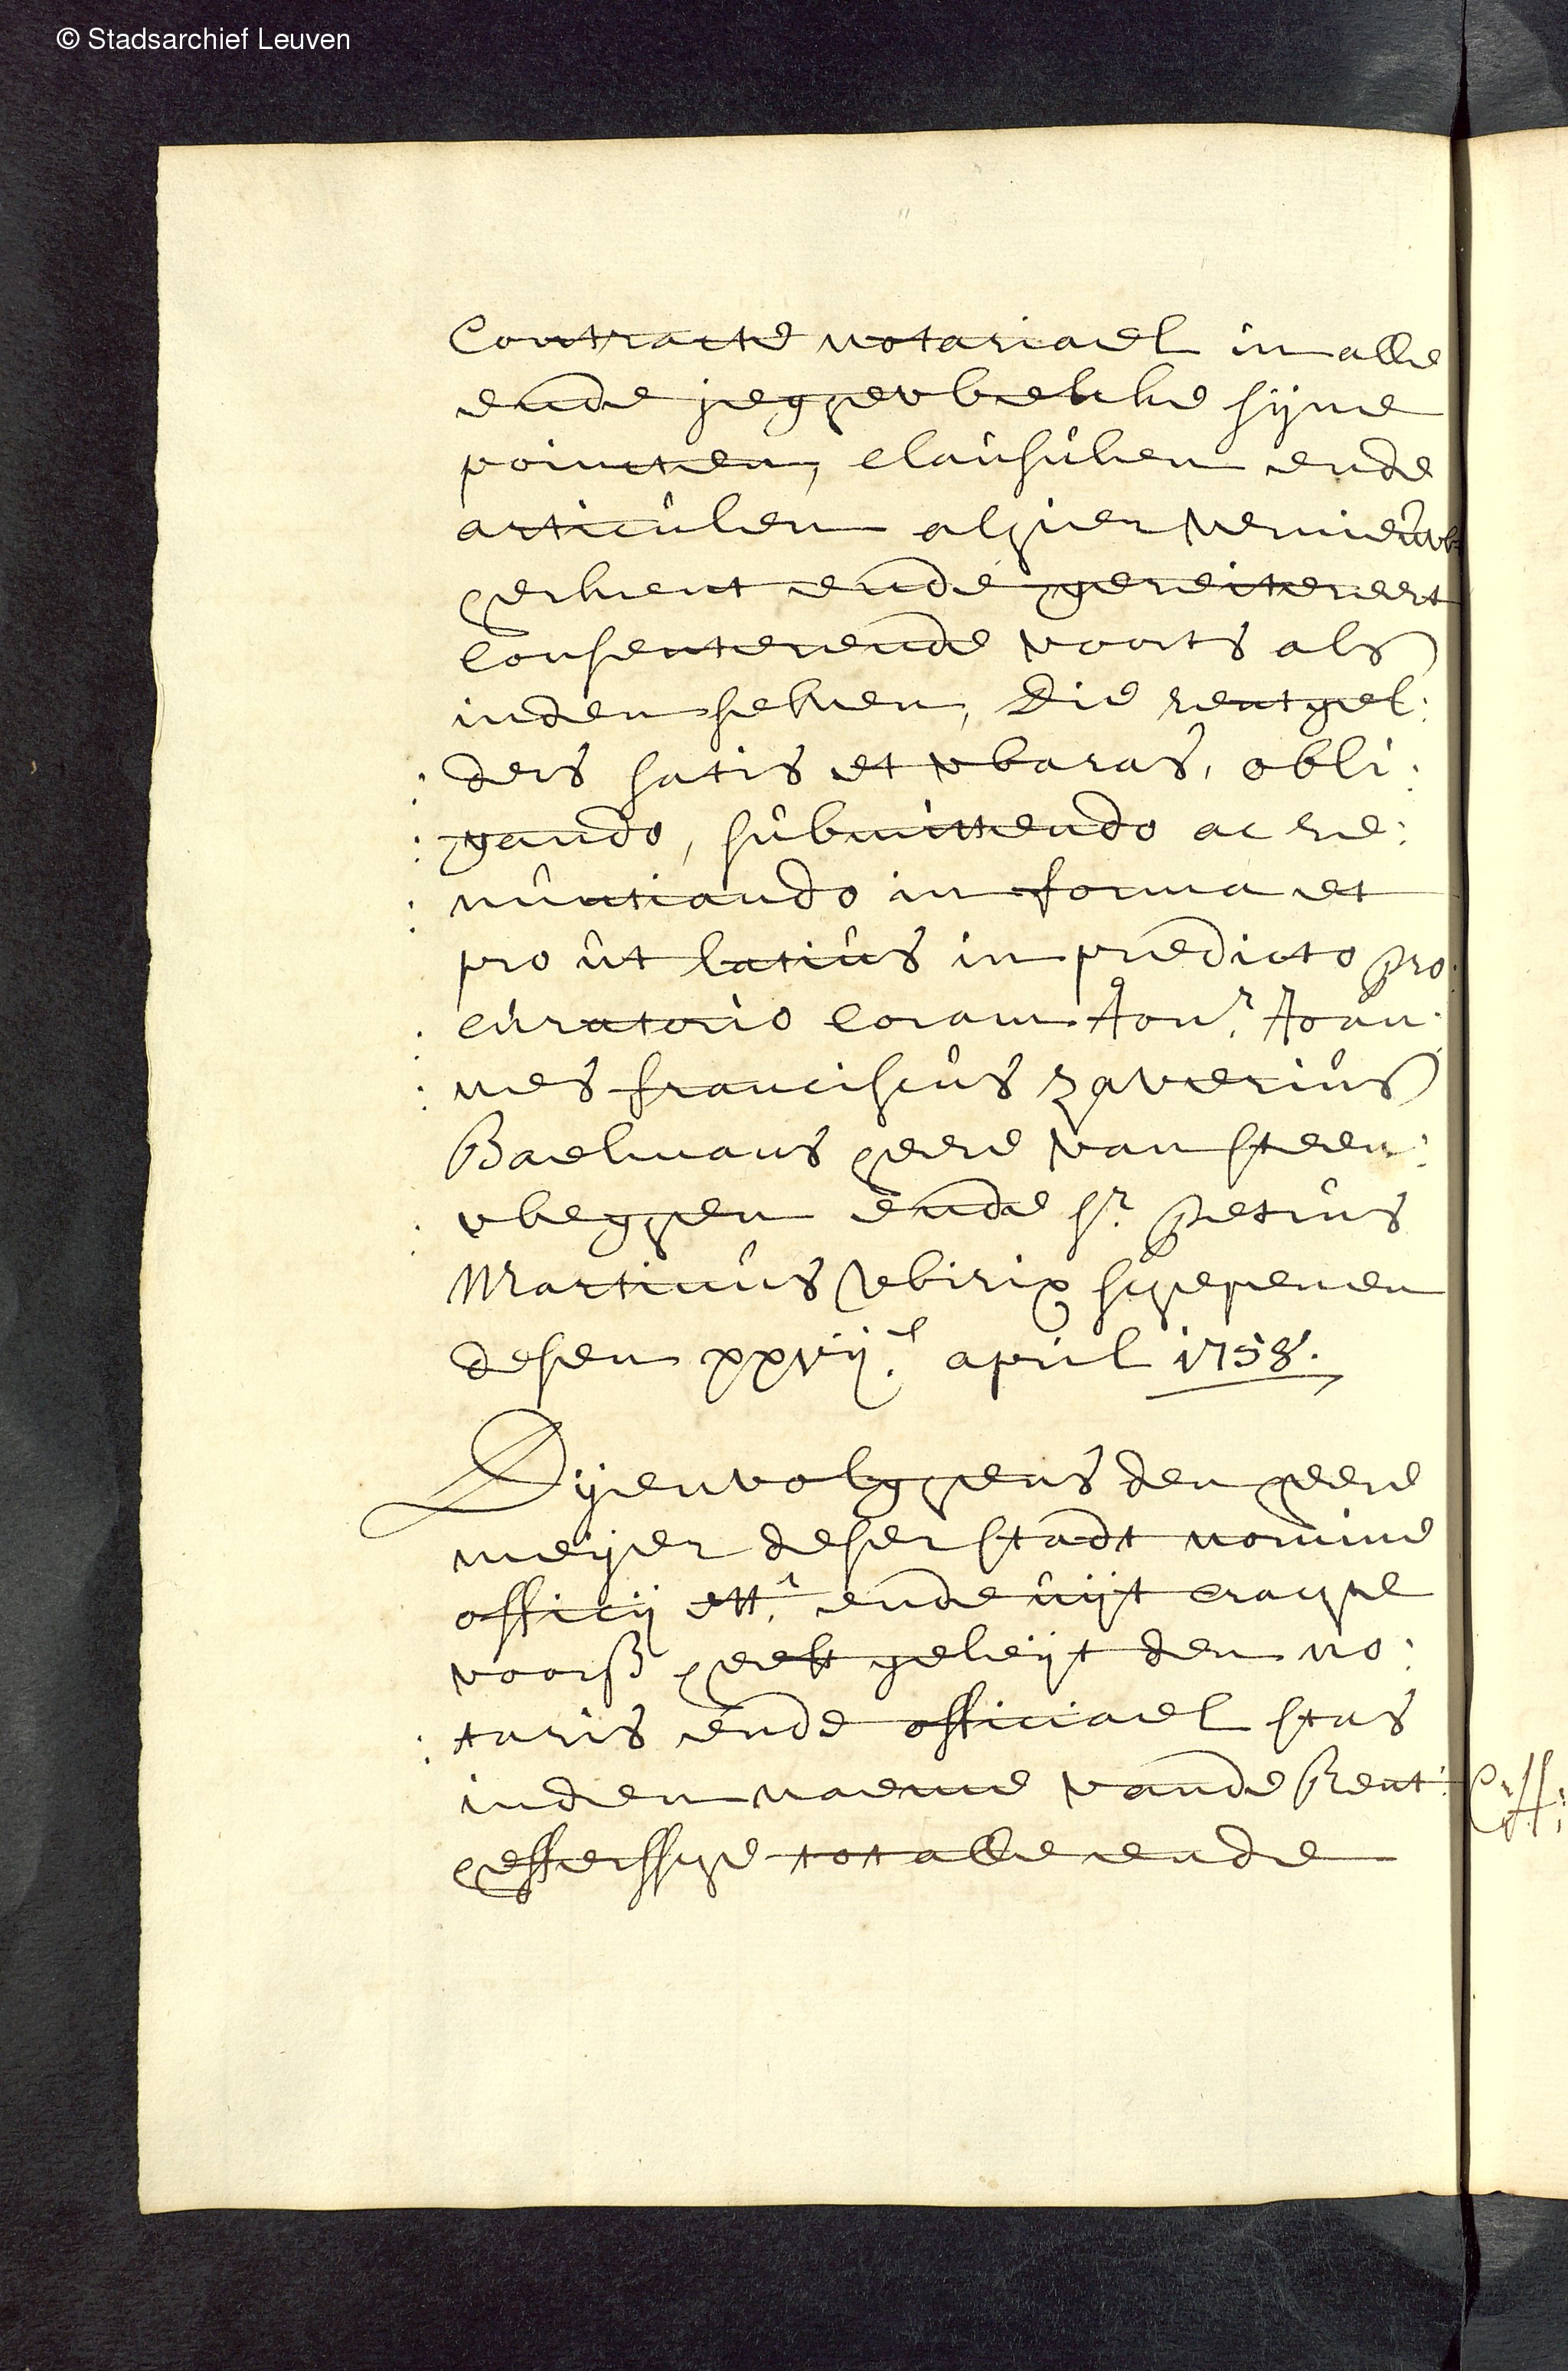 © Stadsarchief Leuven
Contracte notariael in alle
ende jeghewelcke sijne
poincten, clausulen ende
articulen alhier vernieuwt
gerkent ende gereitereert
Consenterende voorts als
inden selven, Die rentgel:
: ders satis et waras, obli:
: gando, submittendo ac re:
: nuntiando in forma et
pro ut latius in predicto pro
: curatorio Coram Jonr. Joan:
: nes franciscus Xaverius
Baelmans heere van steen:
: weghen ende sr. Petrus
Martinus Wirix schepenen
desen xxvij. april 1758.
Dijenvolghens den heere
meijer deser stadt nomine
officij ett. ende uijt crachte
voors heeft geleijt den no:
: taris ende officiael stas
inden naeme vande Rent:
hefferssche tot alle ende